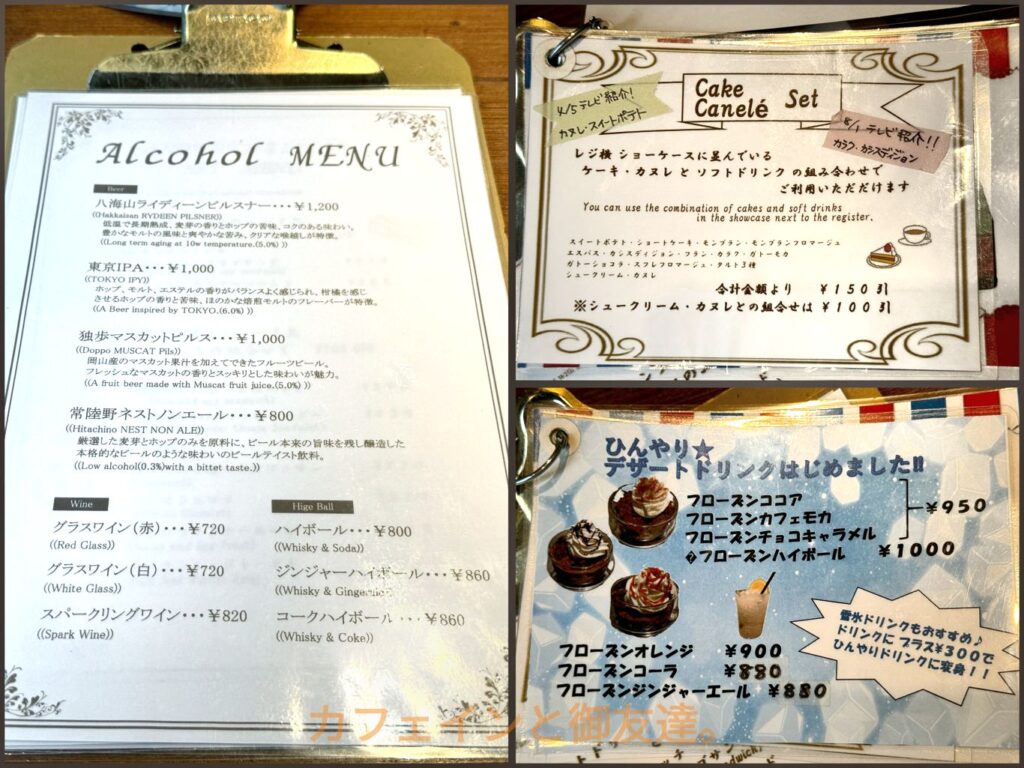 Alcohol MENU
Beer
八海山ライディーンピルスナー・・・￥1,200
((Hakkaisan RYDEEN PILSNER))
低温で長期熟成、麦芽の香りとホップの苦味、コクのある味わい。
豊かなモルトの風味と爽やかな苦み、クリアな喉越しが特徴。
((Long term aging at 10w temperature.(5.0%) ))
東京IPA・・・￥1,000
((TOKYO IPY))
ホップ、モルト、エステルの香りがバランスよく感じられ、柑橘を感じ
させるホップの香りと苦味、ほのかな焙煎モルトのフレーバーが特徴。
((A Beer inspired by TOKYO.(6.0%) ))
独歩マスカットピルス・・・￥1,000
((Doppo MUSCAT Pils))
岡山産のマスカット果汁を加えてできたフルーツビール。
フレッシュなマスカットの香りとスッキリとした味わいが魅力。
((A fruit beer made with Muscat fruit juice.(5.0%) ))
常陸野ネストノンエール・・・￥800
((Hitachino NEST NON ALE))
厳選した麦芽とホップのみを原料に、ビール本来の旨味を残し醸造した
本格的なビールのような味わいのビールテイスト飲料。
((Low alcohol(0.3%)with a bittet taste.))
Wine
グラスワイン（赤）・・・￥720
((Red Glass))
グラスワイン（白）・・・￥720
((White Glass))
スパークリングワイン・・・￥820
((Spark Wine))
Hige Ball
ハイボール・・・￥800
((Whisky & Soda))
ジンジャーハイボール・・・￥860
((Whisky & Ginger
コークハイボール・・・￥860
((Whisky & Coke))
Cake
Canelé Set
4/5 テレビ紹介!
カヌレ・スイートポテト
8/1 テレビ紹介!!
カラク・カシスディジョン
レジ横 ショーケースに並んでいる
ケーキ・カヌレ と ソフトドリンク の組み合わせで
ご利用いただだけます
You can use the combination of cakes and soft drinks
in the showcase next to the register.
スイートポテト・ショートケーキ・モンブラン・モンブランフロマージュ
エスパス・カシスディジョン・フラン・カラク・ガトーモカ
ガトーショコラ・スフレフロマージュ・タルト3種
シュークリーム・カヌレ
合計金額より ￥150引
※シュークリーム・カヌレとの組合せは ￥100引
ひんやり☆
デザートドリンクはじめました!!
フローズンココア
フローズンカフェモカ
フローズンチョコキャラメル
￥950
�フローズンハイボール ￥1000
フローズンオレンジ ￥900
フローズンコーラ ￥880
フローズンジンジャーエール ￥880
雪氷ドリンクもおすすめ♪
ドリンクに プラス¥300で
ひんやりドリンクに変身！！
カフェインと御友達。